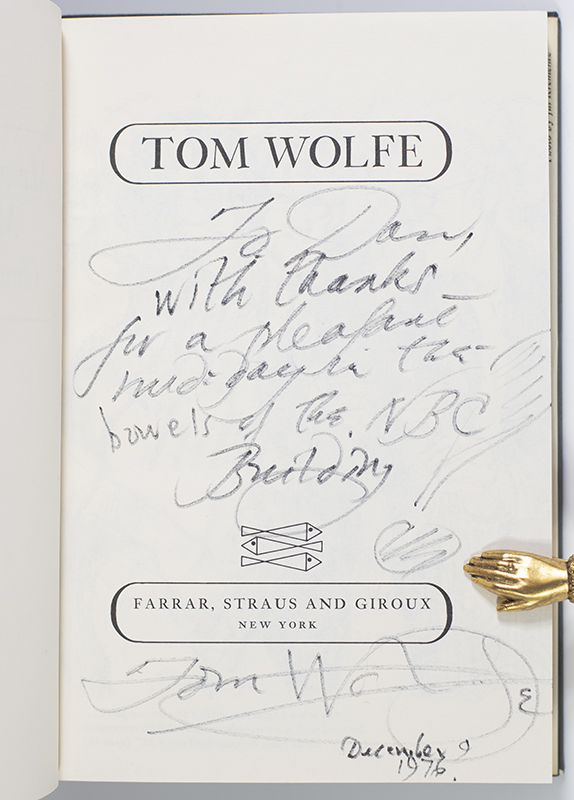 TOM WOLFE
To Dan,
with thanks
for a pleasant
mid-day in the
bowels of the NBC
Building
FARRAR, STRAUS AND GIROUX
NEW YORK
Tom Wolfe
December 9
1976.